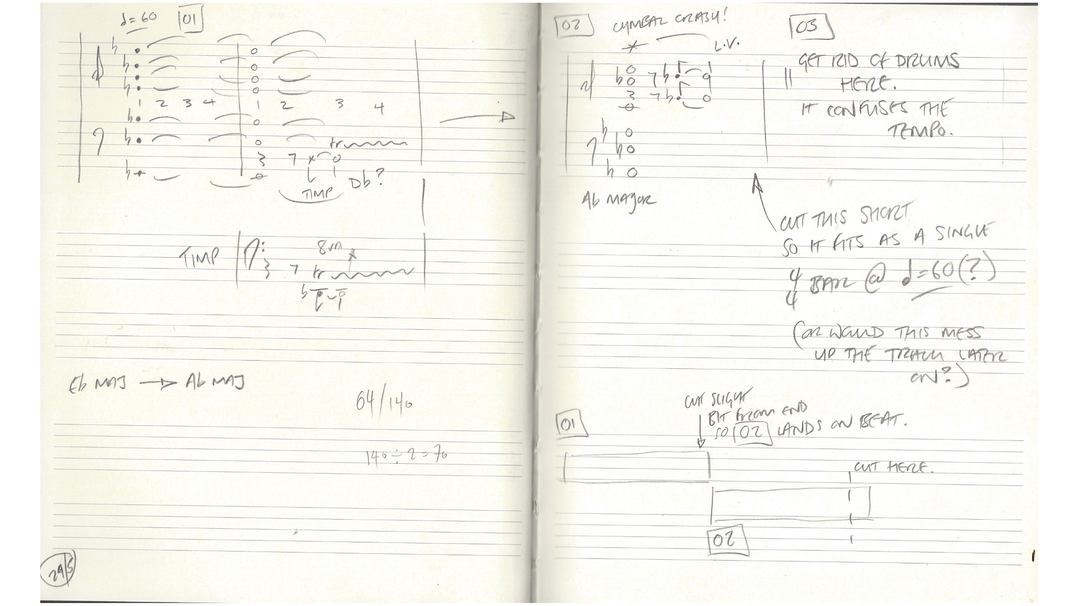 ♩=60 01
1 2 3 4 1 2 3 4
TIMP Db?
TIMP
8va
Eb MAJ → Ab MAJ
64/140
140÷2=70
29/5
02 CYMBAL CRASH!
L.V.
Ab MAJOR
03
GET RID OF DRUMS
HERE.
IT CONFUSES THE
TEMPO.
CUT THIS SHORT
SO IT FITS AS A SINGLE
4/4 BAR @ ♩=60(?)
(OR WOULD THIS MESS
UP THE TRACK LATER
ON?)
01
CUT SLIGHT
BIT FROM END
SO 02 LANDS ON BEAT.
CUT HERE.
02